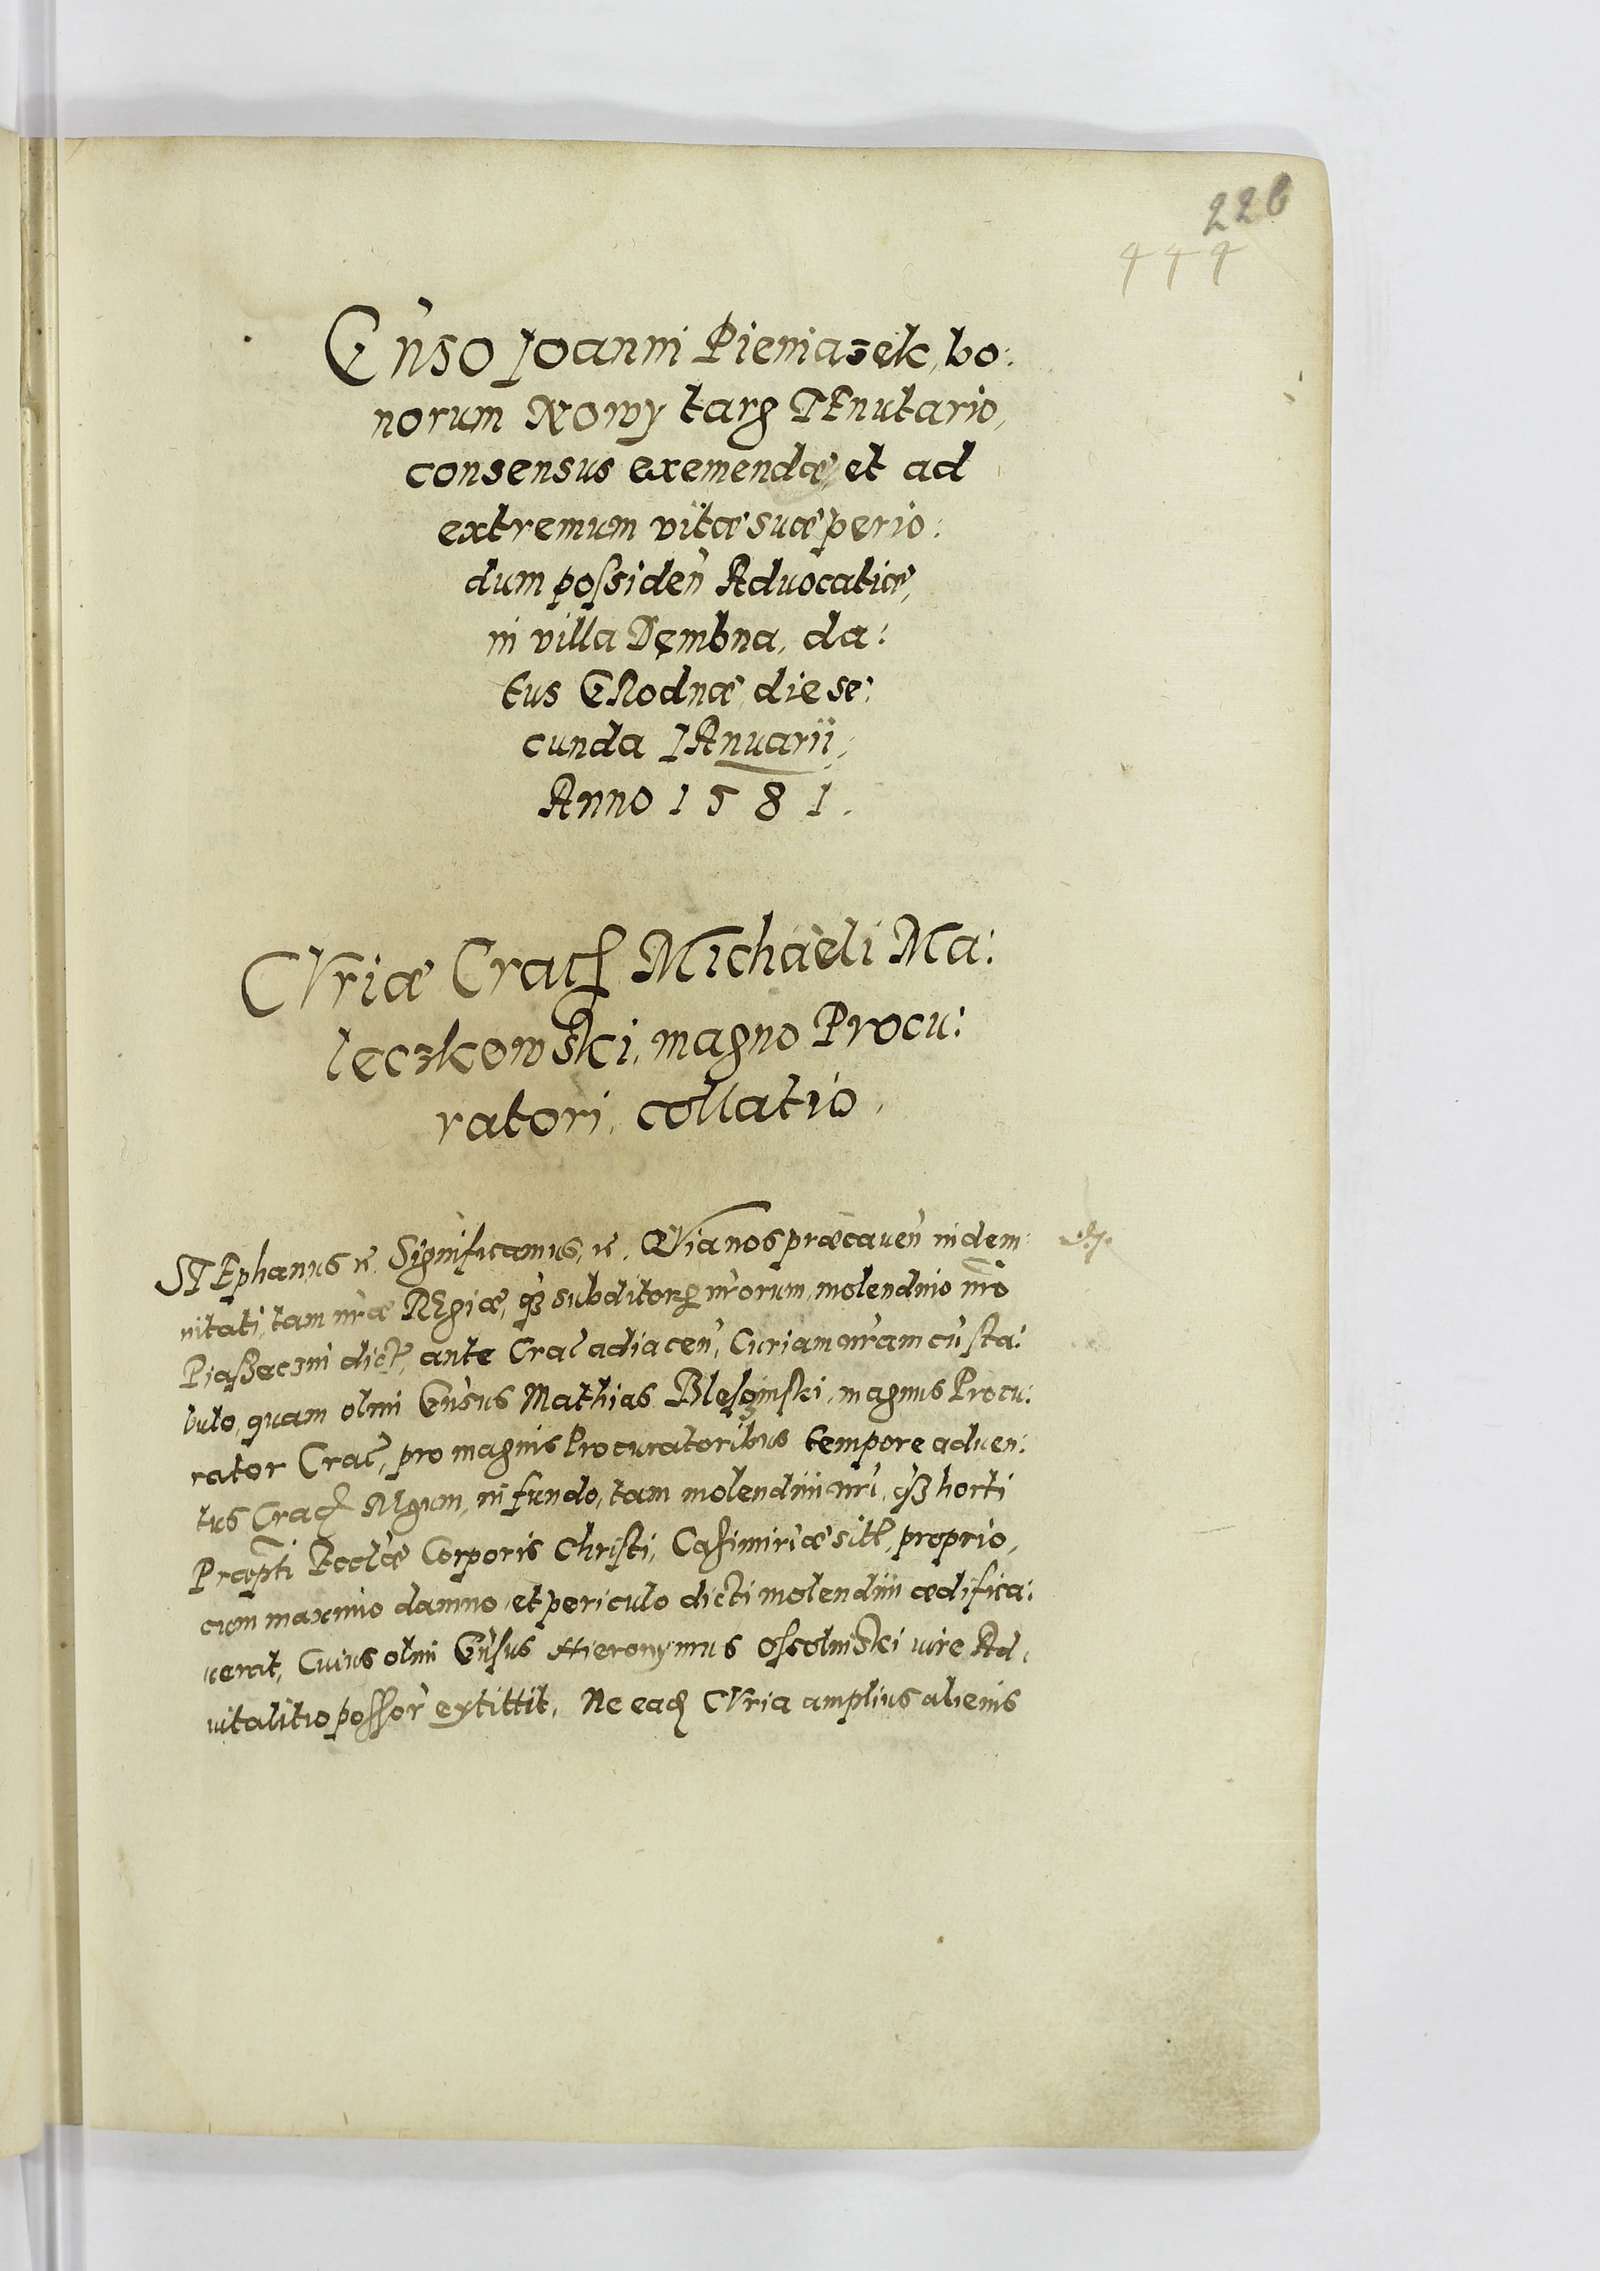 226
444
Gnso Joanni Pieniazek, bo:
norum Nowy targ TEnutario,
consensus exemendæ, et ad
extremum vitæ suæ perio:
dum possiden Advocatiæ,
in villa Dęmbna, da:
tus GRodnæ die se:
cunda IAnuarii,
Anno 1581.
CVriæ Crac Michaeli Ma:
leczkowski, magno Procu:
ratori, collatio.
STEphanus etc. Significamus, etc. QVia nos præcaven indem:
nitati, tam nræ REgiæ, q subditor nrorum, molendino nro
Piaßeczni dict, ante Crac adiacen, Curiam nram cu sta:
bulo, quam olim Gnsus Mathias Blesginski, magnus Procu:
rator Crac, pro magnis Procuratoribus tempore adven:
tus Crac in fundo, tam molendini nri, q horti
Præpti Ecclæ Corporis Christi, Casimiriæ sit, proprio,
cum maximo damno, et periculo dicti molendini ædifica:
verat, Cuius olim Gnsus Hieronymus Ossolinski iure Ad
vitalitio possor extittit, Ne ead CVria amplius alienis